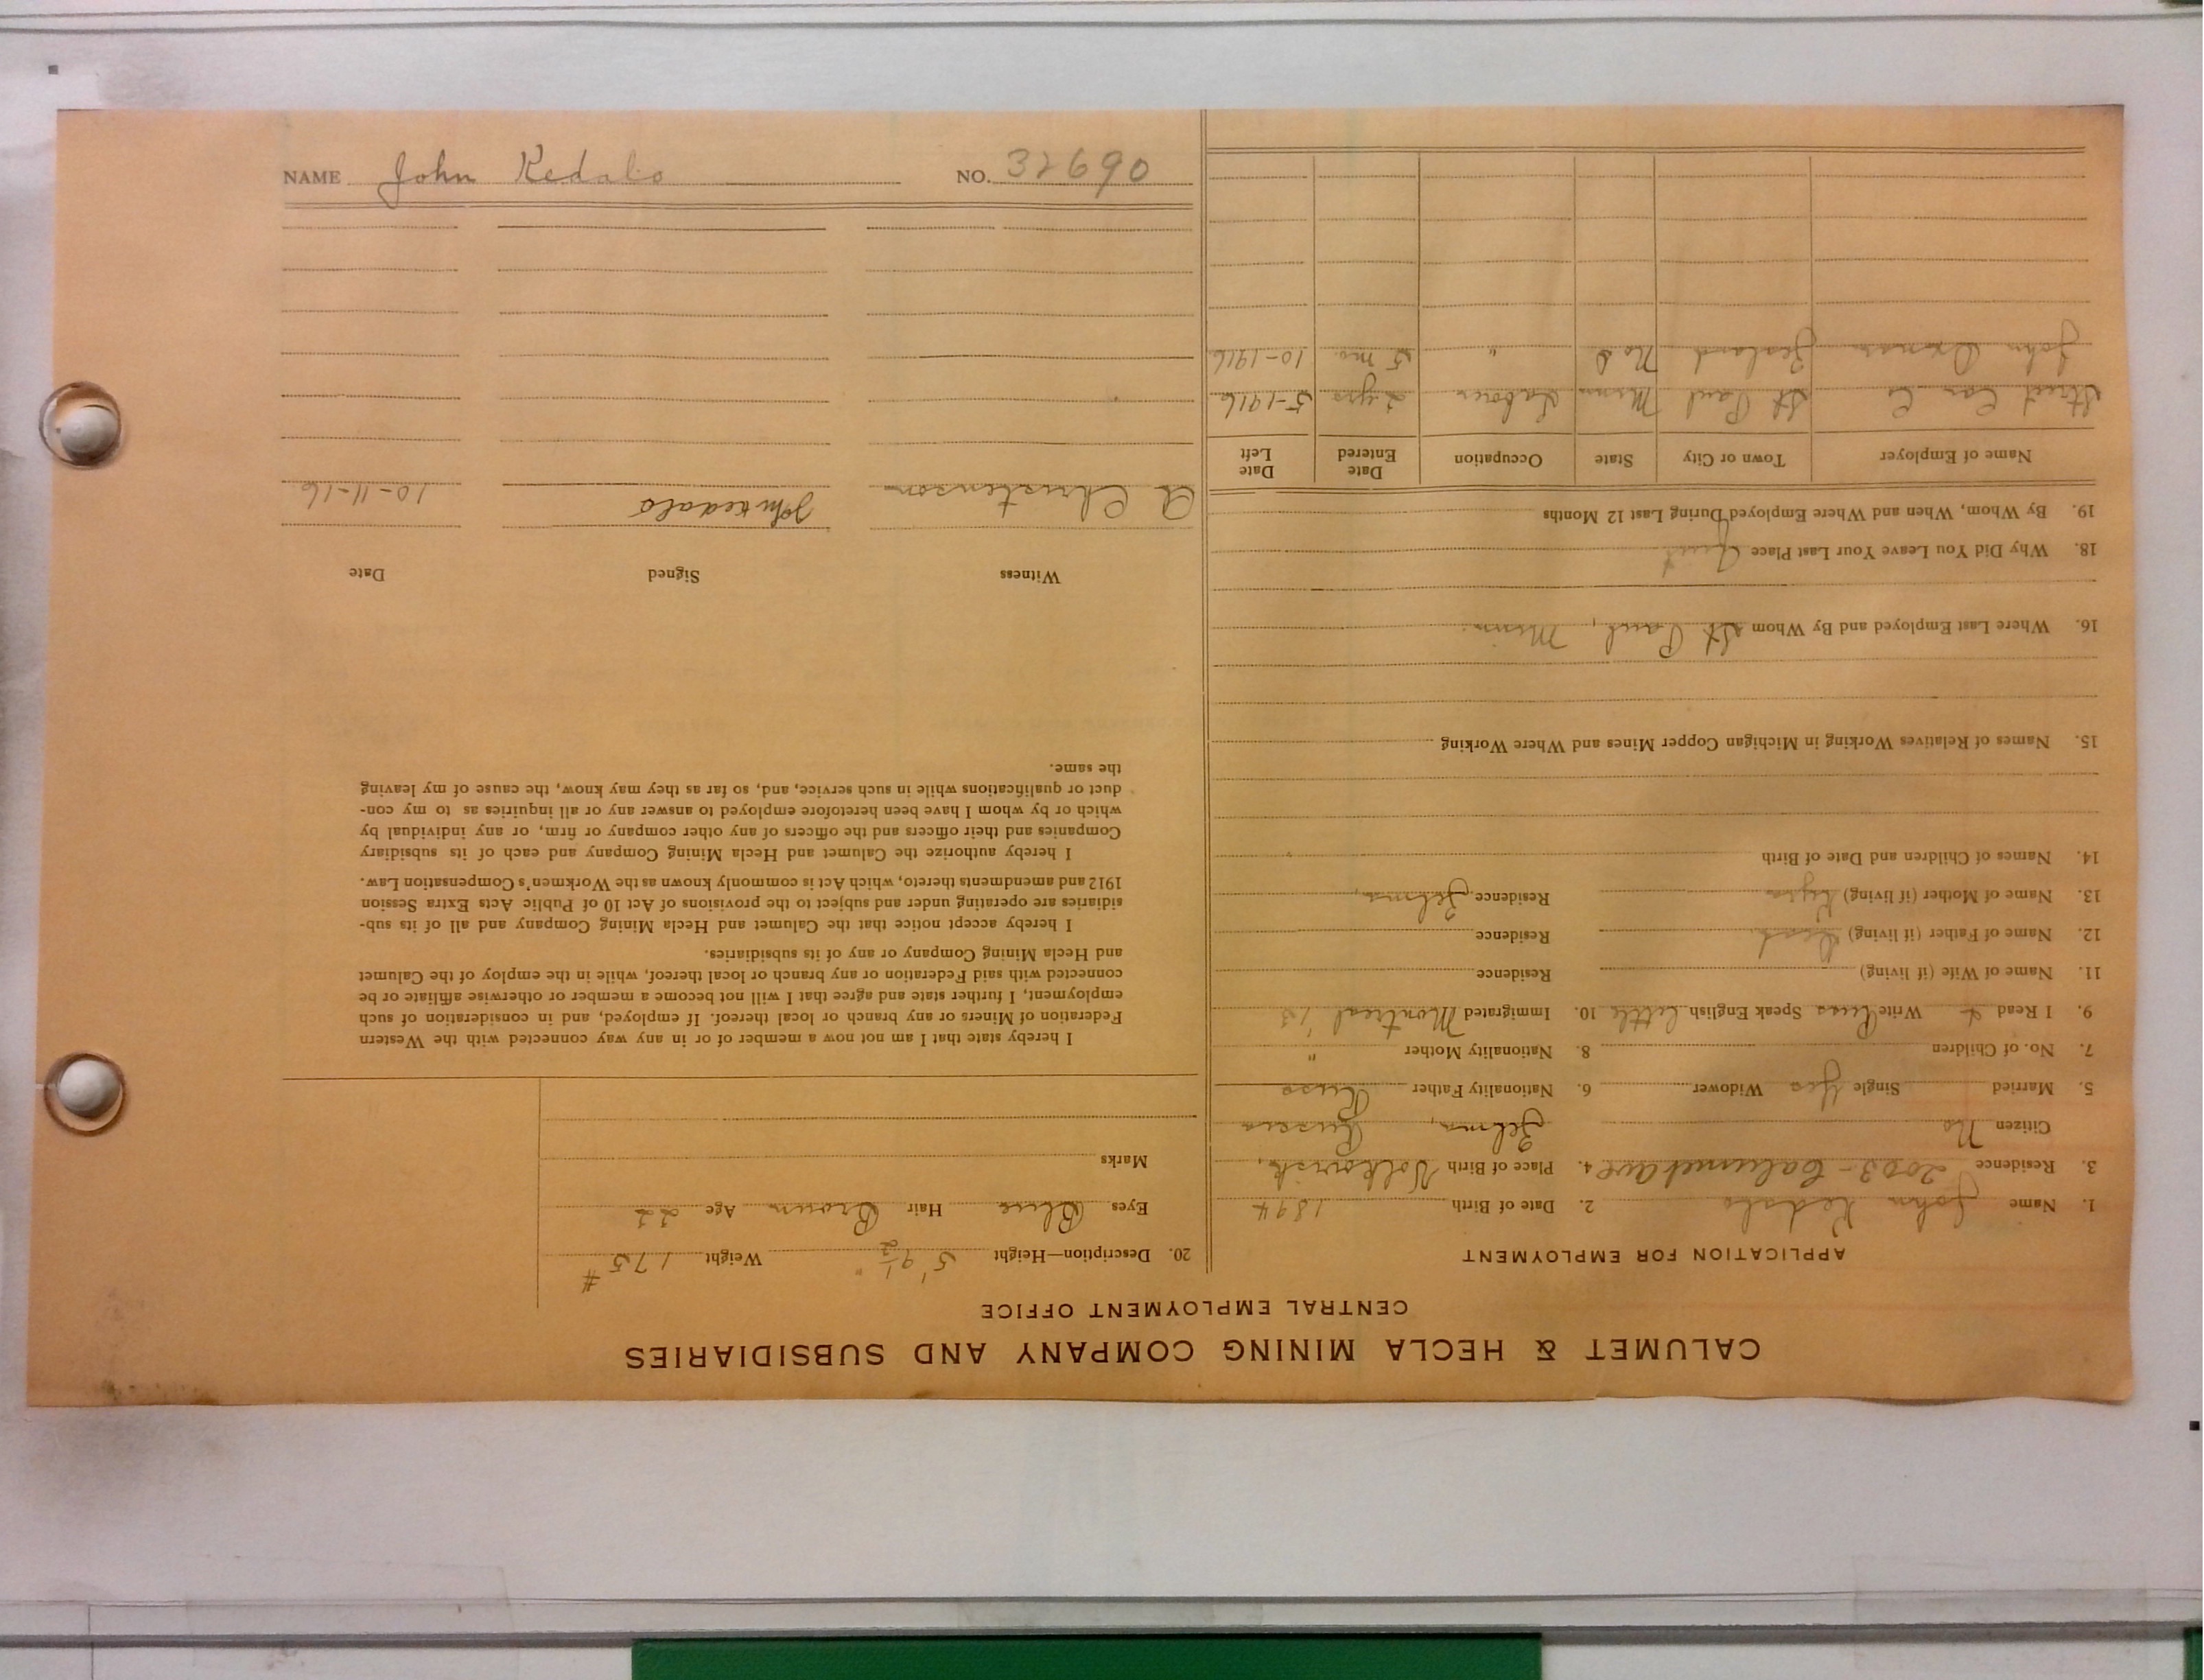 NAME John Kedalo NO. 32690
CALUMET & HECLA MINING COMPANY AND SUBSIDIARIES
CENTRAL EMPLOYMENT OFFICE
APPLICATION FOR EMPLOYMENT
1. Name John Kedalo 2. Date of Birth 1894
3. Residence 2003 - Calumet ave 4. Place of Birth Volkovisk,
Citizen No Russia
5. Married Single Yes Widower 6. Nationality Father Russ
7. No. of Children 8. Nationality Mother "
9. I Read & Write Russ Speak English little 10. Immigrated Montreal '13
11. Name of Wife (if living) Residence
12. Name of Father (if living) Dead Residence
13. Name of Mother (if living) Residence
14. Names of Children and Date of Birth
15. Names of Relatives Working in Michigan Copper Mines and Where Working
16. Where Last Employed and By Whom St Paul, Minn.
18. Why Did You Leave Your Last Place Quit
19. By Whom, When and Where Employed During Last 12 Months
Name of Employer Town or City State Occupation Date Entered Date Left
Street Car Co St Paul Minn Laborer 2 yrs 5-1916
John N.D " 5 mo. 10-1916
20. Description—Height 5' 9 1/2" Weight 175 #
Eyes Blue Hair Brown Age 22
Marks
I hereby state that I am not now a member of or in any way connected with the Western
Federation of Miners or any branch or local thereof. If employed, and in consideration of such
employment, I further state and agree that I will not become a member or otherwise affiliate or be
connected with said Federation or any branch or local thereof, while in the employ of the Calumet
and Hecla Mining Company or any of its subsidiaries.
I hereby accept notice that the Calumet and Hecla Mining Company and all of its sub-
sidiaries are operating under and subject to the provisions of Act 10 of Public Acts Extra Session
1912 and amendments thereto, which Act is commonly known as the Workmen's Compensation Law.
I hereby authorize the Calumet and Hecla Mining Company and each of its subsidiary
Companies and their officers and the officers of any other company or firm, or any individual by
which or by whom I have been heretofore employed to answer any or all inquiries as to my con-
duct or qualifications while in such service, and, so far as they may know, the cause of my leaving
the same.
Witness Signed Date
A Christenson John Kedalo 10-11-16